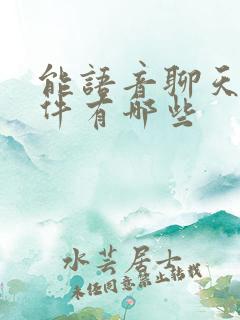 能語音聊天
件有哪些
水芸居士
未经同意禁止转载